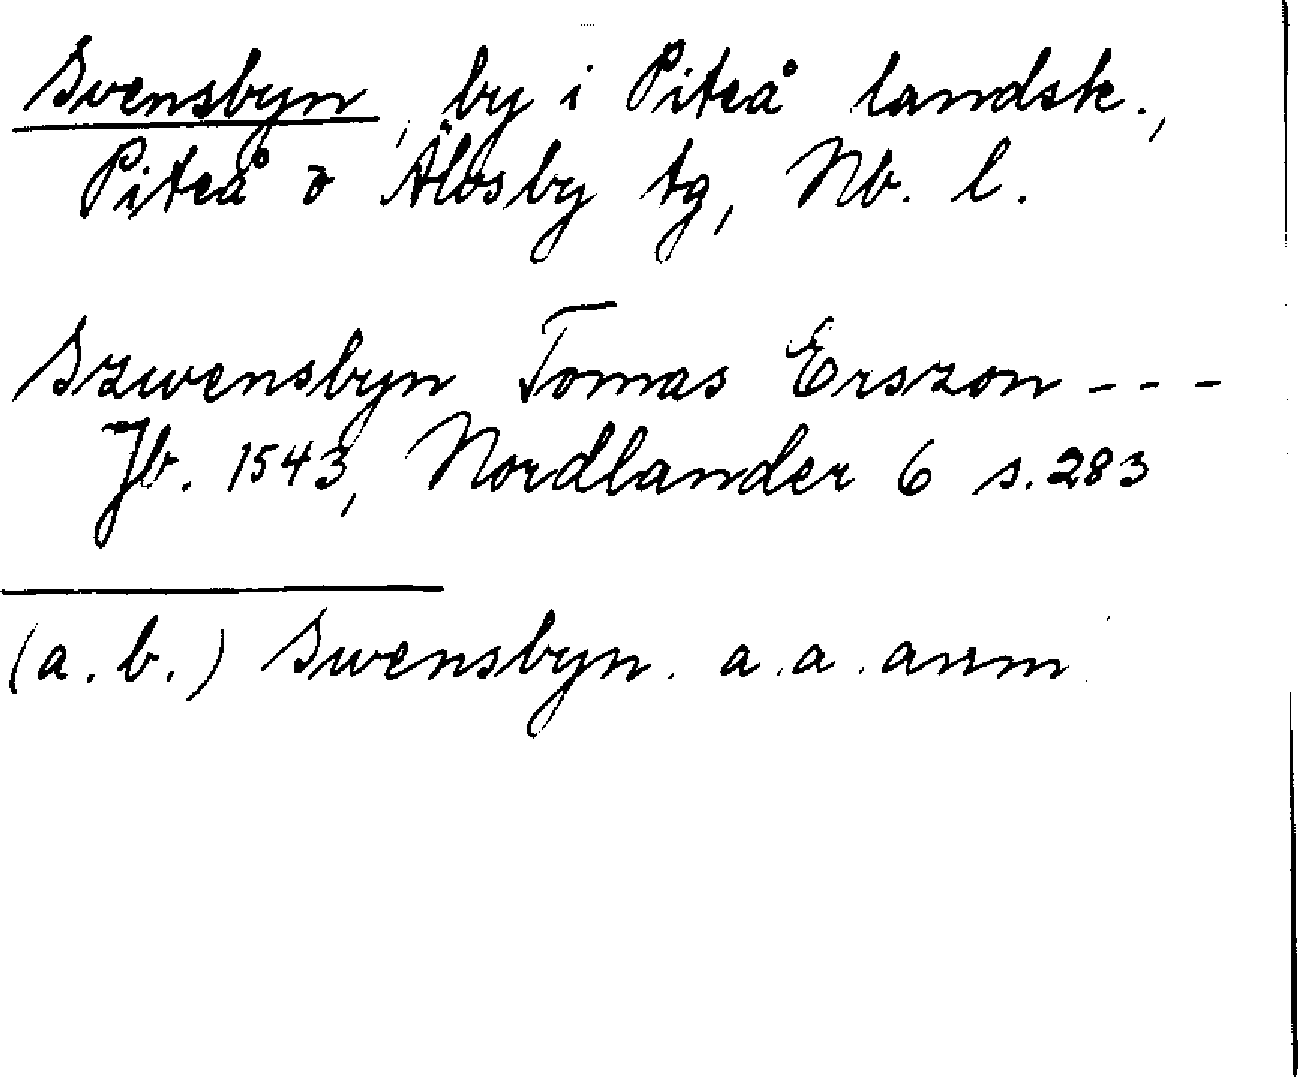 Svensbyn, by i Piteå landsk.,
Piteå o Älvsby tg, Nb. l.
Szwensbyn Tomas Erszon ---
Jb. 1543, Nordlander 6 s. 283
(a. b.) Swensbyn. a. a. anm.